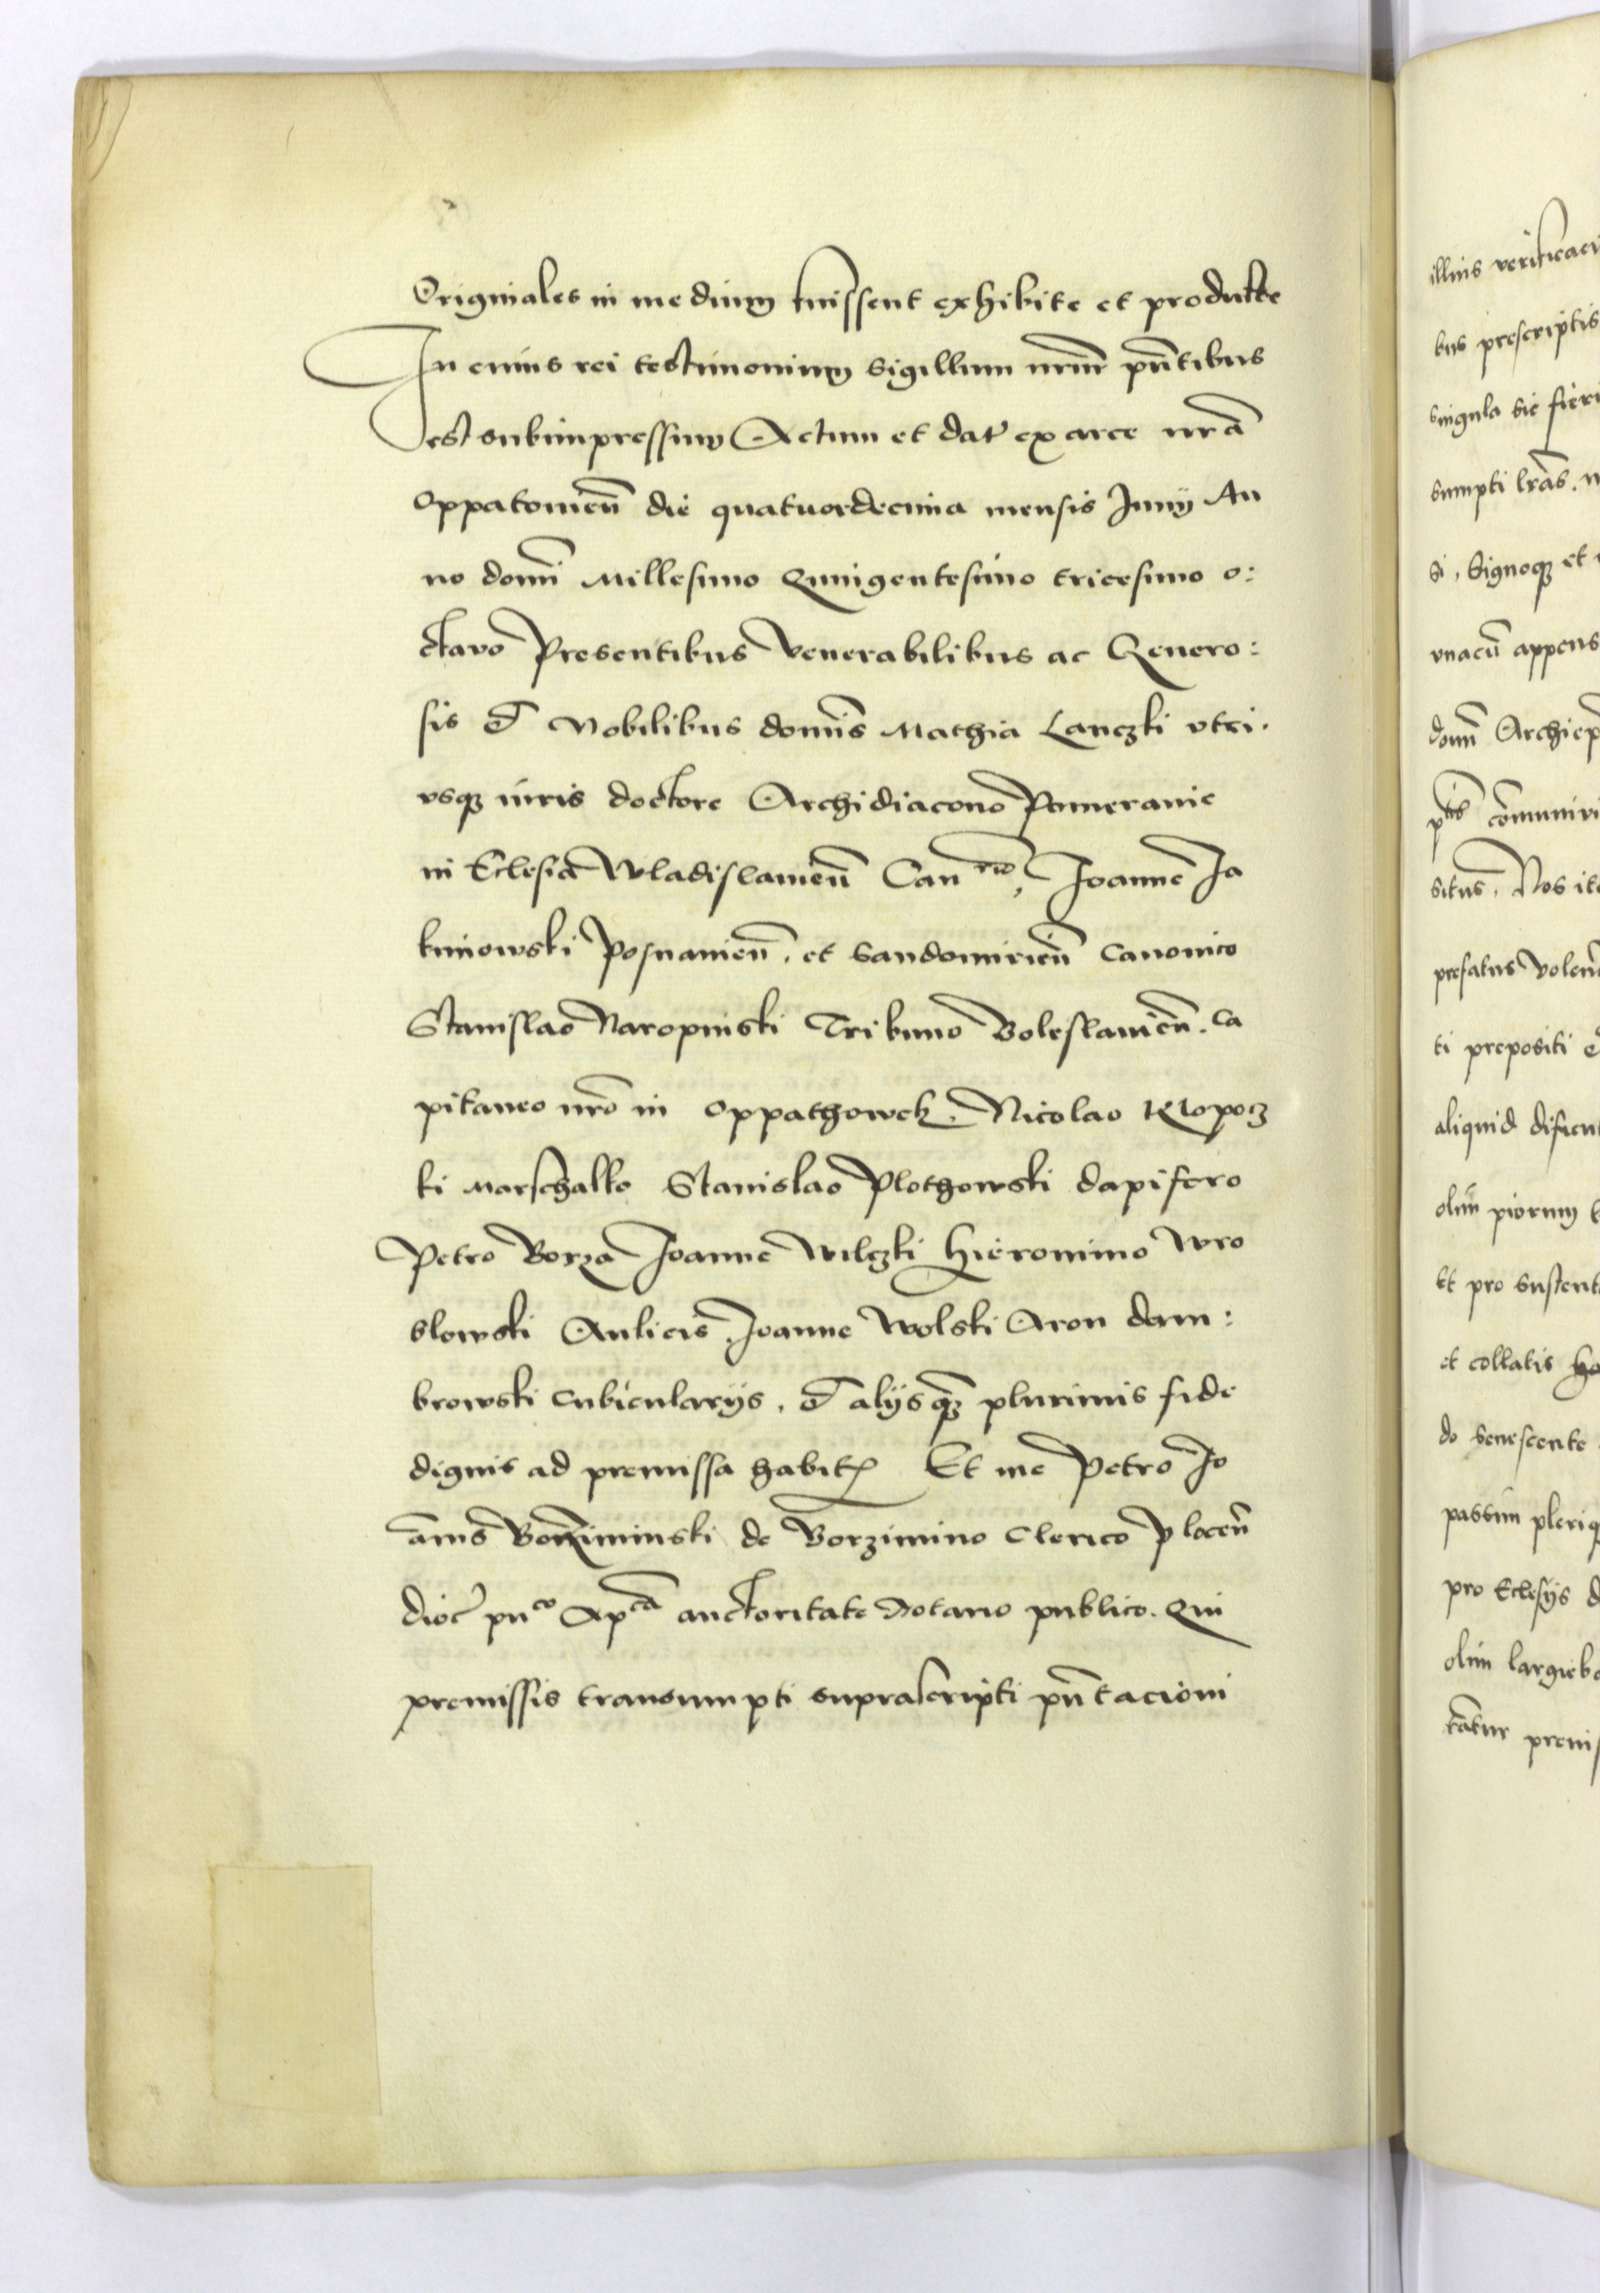 Originales in medium fuissent exhibite et producte
In cuius rei testimonium Sigillum nrm̃ pñtibus
est subimpressum Actum et dat̃ ex arce nrã
Oppatouien̄ die quatuordecima mensis Junij An
no domī Millesimo Quingentesimo tricesimo o:
ctauo Presentibus Venerabilibus ac Genero:
sis et Nobilibus domīs Mathia Lanczki vtri.
usqꝫ iuris doctore Archidiacono Pomeranie
in Eclesia Wladislauien̄ Canrio, Joanne Ja
kunowski Posnanien̄. et Sandomirien̄ Canonico
Stanislao Naropinski Tribuno Boleslauien̄. Ca
pitaneo nrõ in Oppathowek. Nicolao Klopocz
ki Marschalko Stanislao Plothowski dapifero
Petro Borza Joanne Wilczki Hieronimo Wro
blowski Aulicis, Joanne Wolski Aron dam:
browski cubicularijs. et alijs qꝫ plurimis fide
dignis ad premissa habitꝭ Et me Petro Jo
ãnis Borziminski de Borzimino Clerico Plocen̄
dioc̃ pu͞co Apca auctoritate Notario publico. Qui
premissis transumpti suprascripti pñtacioni
illius verificaci
bus prescriptis
singula sic fieri
sumpti lrãs.
si, Signoqꝫ et
vnacū appens
domī Archiep̄
ptis cõmuniri
situs. Nos it
prefatus Volen̄
ti prepositi
aliquid
olim piorum
Et pro sustent
et collatis ho
do senescente
passim pleriq
pro Eclesijs d
olim largieba
tãtur premis